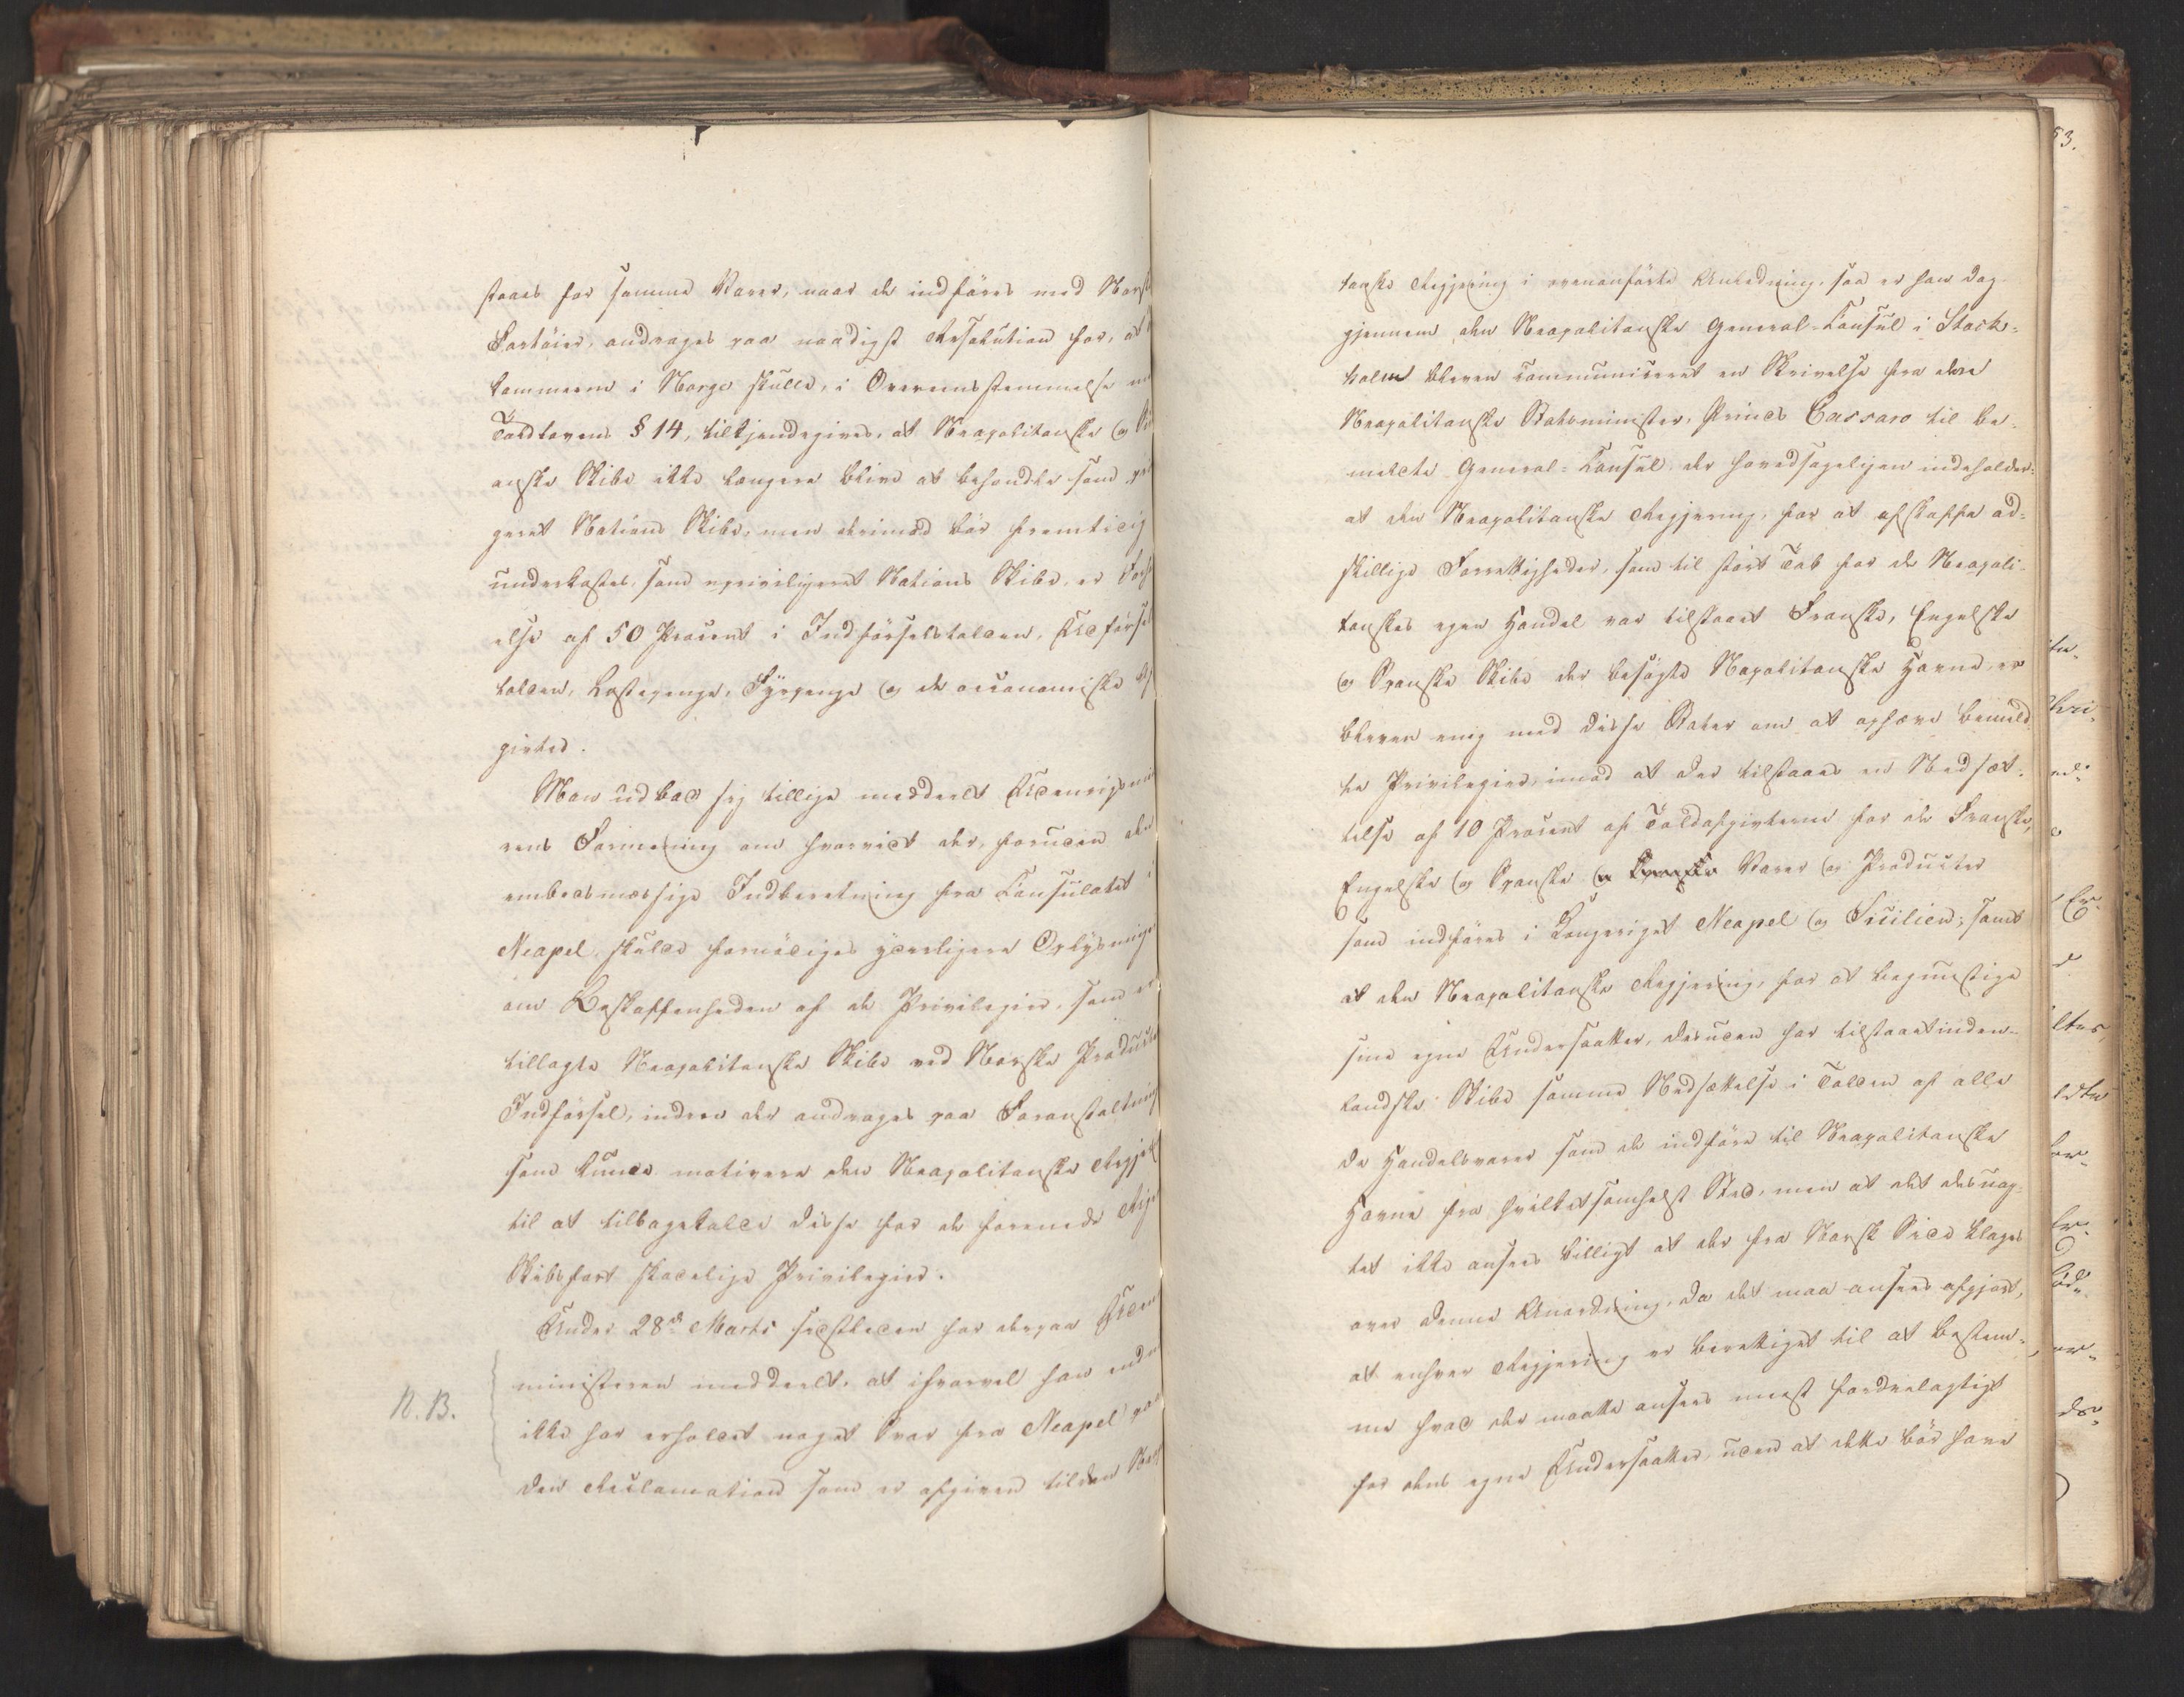 staaes for samme Varer, naar de indføres med Norsk
Fartøier, andrages paa naadigst Resolution for, at
kammerne i Norge skulle, i Overeensstemmelse med
Toldlovens § 14, tilkjendegives, at Neapolitanske og
anske Skibe ikke længere blive at behandle som
geret Nations Skibe, men derimod bør fremtidig
underkastes, som upriviligeret Nations Skibe, en
else af 50 Procent i Indførselstolden, Udførsel
tolden, Lastepenge, Fyrpenge og de oeconomiske
givter.
Man udbad sig tillige meddeelt Udenrigsmi
rens Formening om hvorvidt der, foruden den
embedsmæssige Indberetning fra Consulatet i
Neapel, skulde fornødiges yderligere Oplysninger
om Beskaffenheden af de Privilegier, som er
tillagte Neapolitanske Skibe ved Norske Producters
Indførsel, inden der andrages paa Foranstaltning
som kunde motivere den Neapolitanske
til at tilbagekalde disse for de forenede
Skibsfart skadelige Privilegier.
Under 28de Marts sidstleden har derpaa Uden
ministeren meddeelt, at ihvorvel han endnu
N. B.
ikke har erholdet noget Svar fra Neapel paa
den Reclamation som er afgiven til den
53.
tanske Regjering i ovenanførte Anledning, saa er ham dog
gjennem den Neapolitanske General-Consul i Stock-
holm bleven communiceret en Skrivelse fra den
Neapolitanske Statsminister, Prinds Cassaro til be-
meldte General-Consul der hovedsageligen indeholder:
at den Neapolitanske Regjering, for at afskaffe ad-
skillige Forrettigheder, som til stort Tab for de Neapoli-
tanskes egen Handel var tilstaaet Franske, Engelske
og Spanske Skibe der besøgte Neapolitanske Havne, er
bleven enig med disse Stater om at ophæve bemeld-
te Privilegier, imod at der tilstaaes en Nedsæt-
telse af 10 Procent af Toldafgivterne for de Franske,
Engelske og Spanske Varer og Producter
som indføres i Kongeriget Neapel og Sicilien; samt
at den Neapolitanske Regjering, for at begunstige
sine egne Undersaatter, desuden har tilstaaet inden-
landske Skibe samme Nedsættelse i Tolden af alle
de Handelsvarer som de indføre til Neapolitanske
Havne fra hvilketsomhelst Sted, men at det desuag-
tet ikke ansees billigt at der fra Norsk Side klages
over denne Anordning, da det maa ansees afgjort,
at enhver Regjering er berettiget til at bestem-
me hvad der maatte ansees meest fordeelagtigt
for dens egne Undersaatter, uden at dette bør have